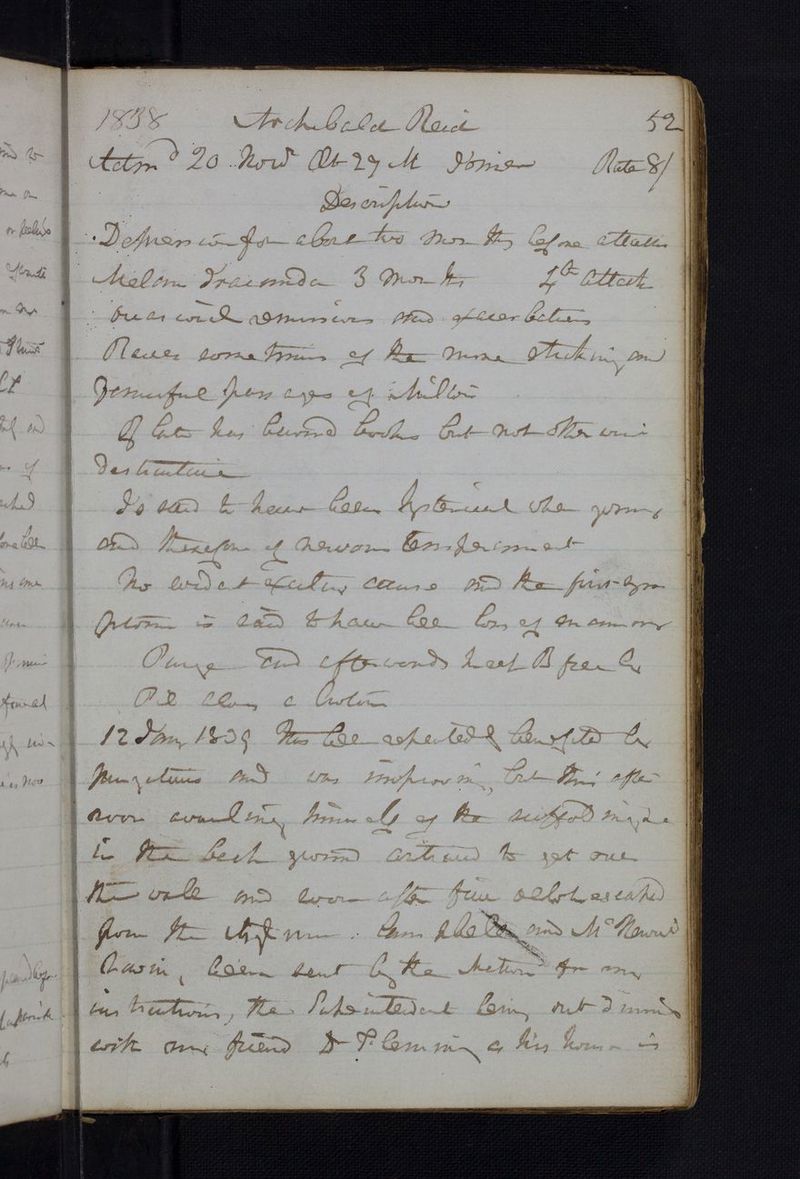 1838 Archibald Reid 52
Admd 20 Novr Æt 27 M Joiner Rate 8/
Description
Depression for about two months before attack
Melan 3 months 4th attack
remissions and exacerbations
Raves sometimes of the more striking and
powerful passages of Milton
Of late has burned books but not otherwise
destructive
Is said to have been hysterical when young
and therefore of nervous temperament
No evident exciting cause and the first sym
ptom is said to have been loss of memory
Purge and afterwards keep B free by
Pil c Croton
12 Jany 1839 Has been repeatedly benefited by
purgatives and was improving, but this after
noon availing himself of the scaffolding
in the back ground contrived to get over
the wall and soon after five oclock escaped
from the Asylum. Campbell and Mc
having been sent by the Matron for my
instructions, the Superintendent being out dining
with my friend Dr Fleming at his house in